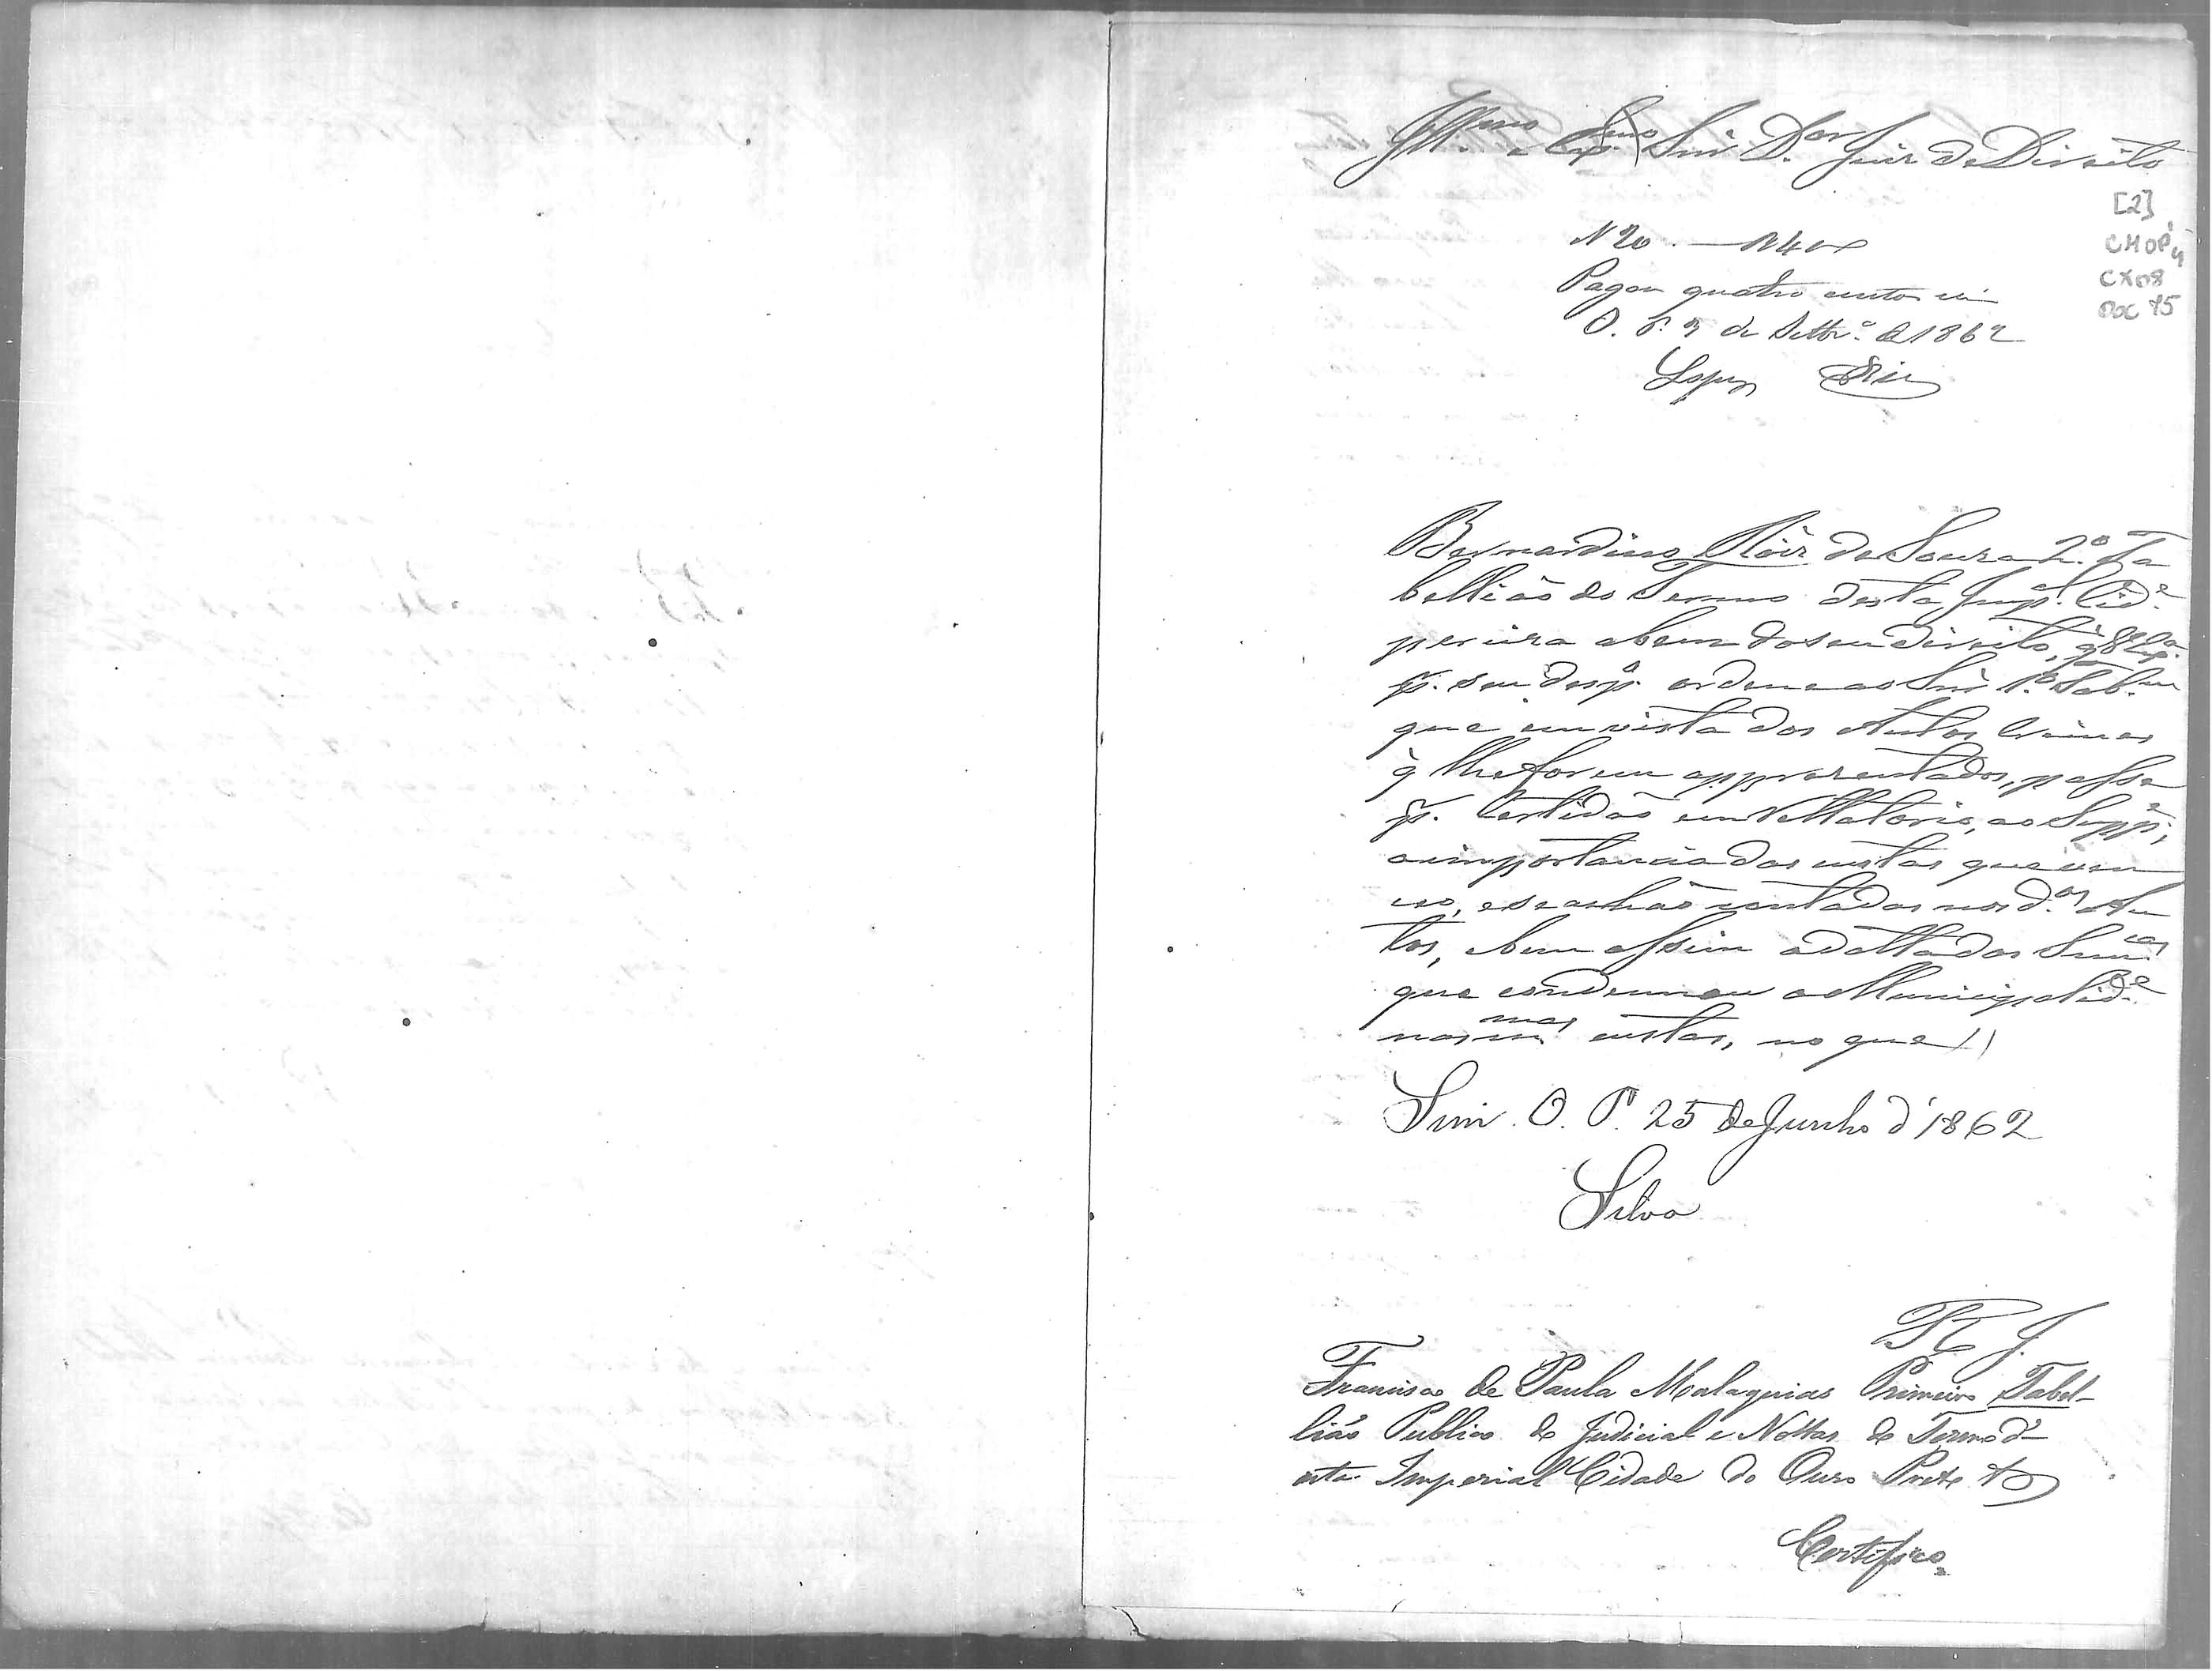 Illmo e Exmo Snr Dor Juiz de Direito
[2]
CMOP
CX 08
DOC 75
N 20. — R 400
Pagou quatro centos reis
O. P. 3 de Settbro de 1862
Lopes
Bernardino de Souza 2.o Ta
bellião do Termo desta Imp.al Cid.e
perciza a bem do seu direito, q̃ V Ex.a
p. seu desp.o ordene ao Snr 1.o Tab.am
que em vista dos Autos Crimes
q̃ lhe forem appresentados, passe
p. Certidão em rellatorio, ao Supp.e,
a importancia das custas que ven
ceo, e se achão contadas nos d.os Au
tos, e bem assim a data das Sen.cas
que condemnou a Municipalid.e
nas mmas custas, no que
Sim. O. P. 25 de Junho d'1862
Silva
E. R. J.
Francisco de Paula Malaquias Primeiro Tabel-
lião Publico do Judicial e Nottas do Termo d'-
esta Imperial Cidade do Ouro Preto &
Certifico